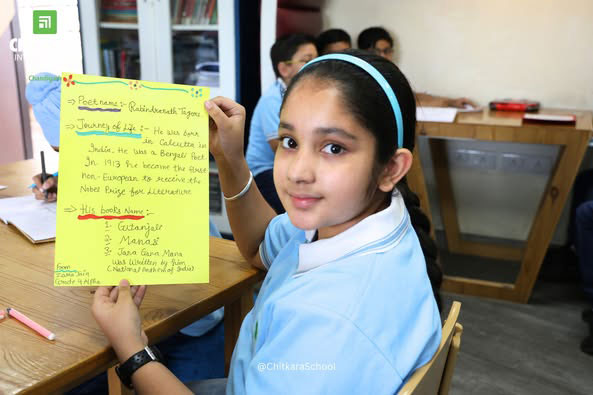 Chandigarh
⇒ Poet name :- Rabindranath Tagore
⇒ Journey of Life :- He was born
in Calcutta in
India. He was a Bengali Poet.
In 1913 he became the first
Non-European to receive the
Nobel Prize for Literature
⇒ His books Name :-
1. Gitanjali
2. Manasi
3. Jana Gana Mana
was written by him
(National Anthem of India)
From
Grade 4
@ChitkaraSchool